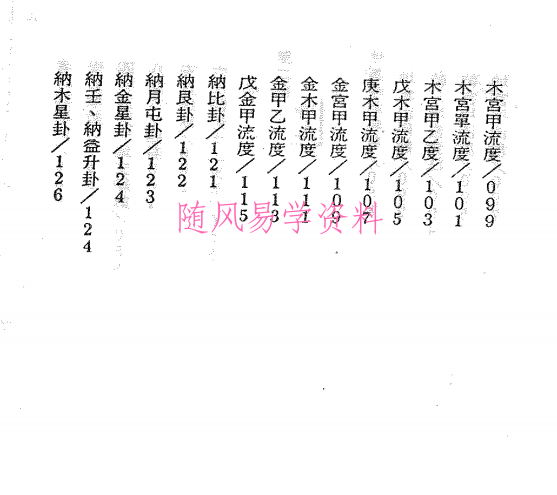 木宮甲流度/099
木宮單流度/101
木宮甲乙度/103
戊木甲流度/105
庚木甲流度/107
金宮甲流度/109
金木甲流度/111
金甲乙流度/113
戊金甲流度/115
納比卦/121
納艮卦/122
納月屯卦/123
納金星卦/124
納壬、納益升卦/124
納木星卦/126
随风易学资料